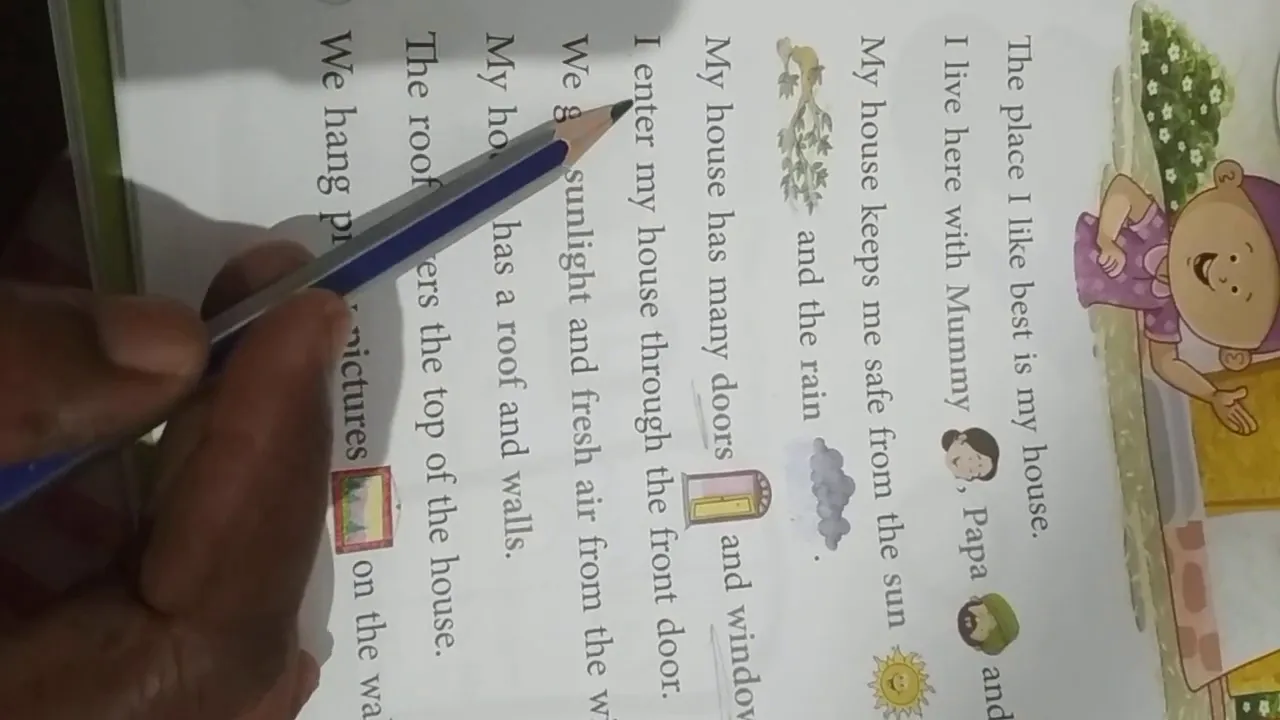 The place I like best is my house.
I live here with Mummy , Papa and
My house keeps me safe from the sun
and the rain .
My house has many doors and window
I enter my house through the front door.
We sunlight and fresh air from the
My has a roof and walls.
The roof the top of the house.
We hang pictures on the